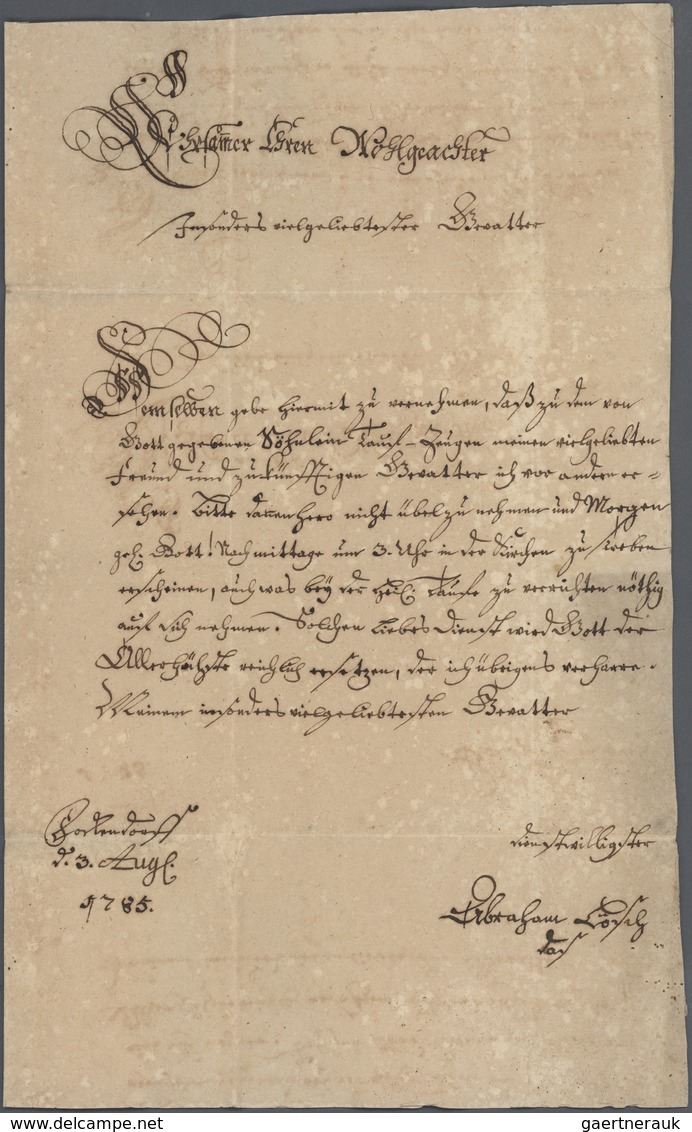 Ehrsamer Ehren Wohlgeachter
Insonders vielgeliebtester Gevatter
Demselben gebe hiermit zu vernehmen, daß zu dem von
Gott gegebenen Söhnlein Tauf-Zeugen meinen vielgeliebten
Freund und zukünfftigen Gevatter ich vor andern er=
sehen. Bitte dannenhero nicht übel zu nehmen und Morgen
gel. Gott! Nachmittage um 3. Uhr in der Kirchen zu
erscheinen, auch was bey der heil. Taufe zu verrichten nöthig
auf sich nehmen. Solchen Liebes Dienst wird Gott der
Allerhöchste reichlich ersetzen, der ich übrigens verharre.
Meinem insonders vielgeliebtesten Gevatter
d. 3. Aug.
1785.
dienstwilligster
Abraham
delcampe.net
gaertnerauk